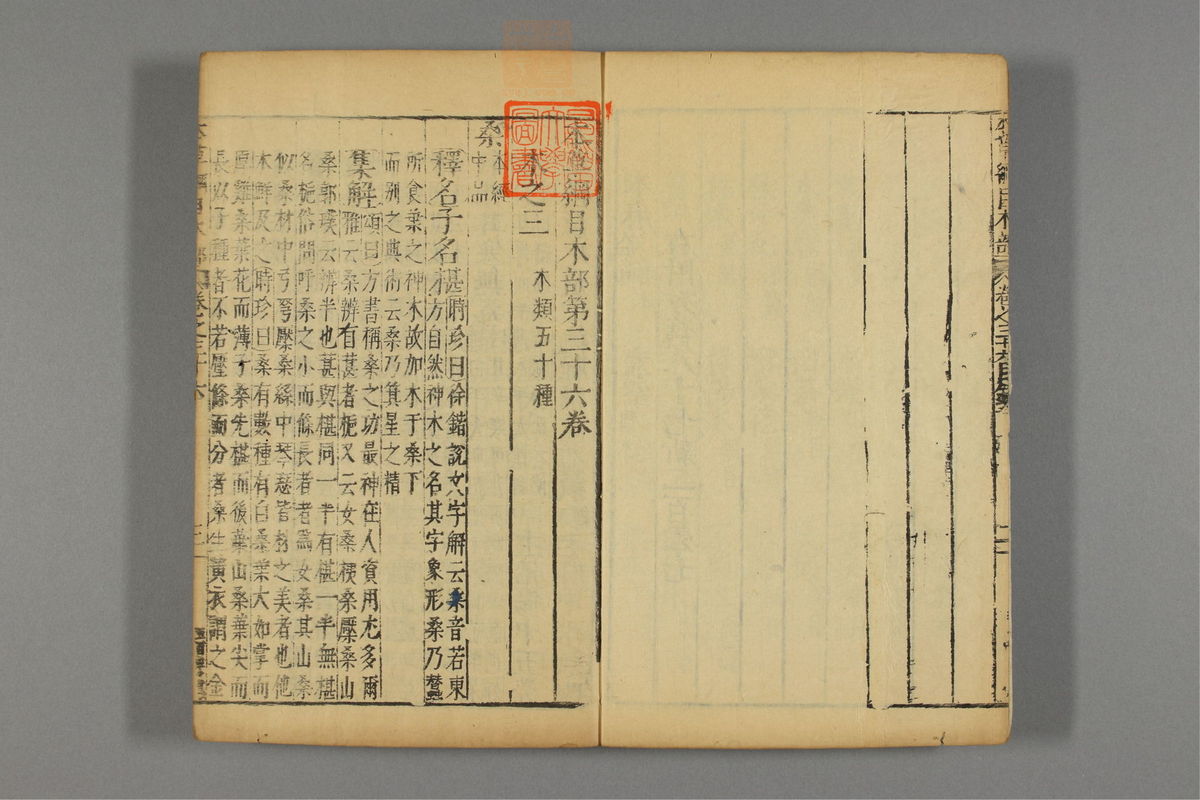 本草綱目木部第三十六卷
木之三 木類五十種
桑 本經中品
釋名子名椹時珍曰徐鍇說文字解云桒音若東
方自然神木之名其字象形桑乃蠶
所食葉之神木故加木于桒下
而別之典術云桑乃箕星之精
集解頌曰方書稱桑之功最神在人資用尤多爾
雅云桑辨有葚者梔又云女桑桋桑檿桑山
桑郭璞云辨半也葚與椹同一半有椹一半無椹
名梔俗間呼桑之小而條長者為女桑其山桑
似桑材中弓弩檿絲中琴瑟皆材之美者也他
木鮮及之時珍曰桑有數種有白桑葉大如掌而
厚雞桑葉花而薄子桑先椹而後葉山桑葉尖而
長以子種者不若壓條而分者桑生黃衣謂之金